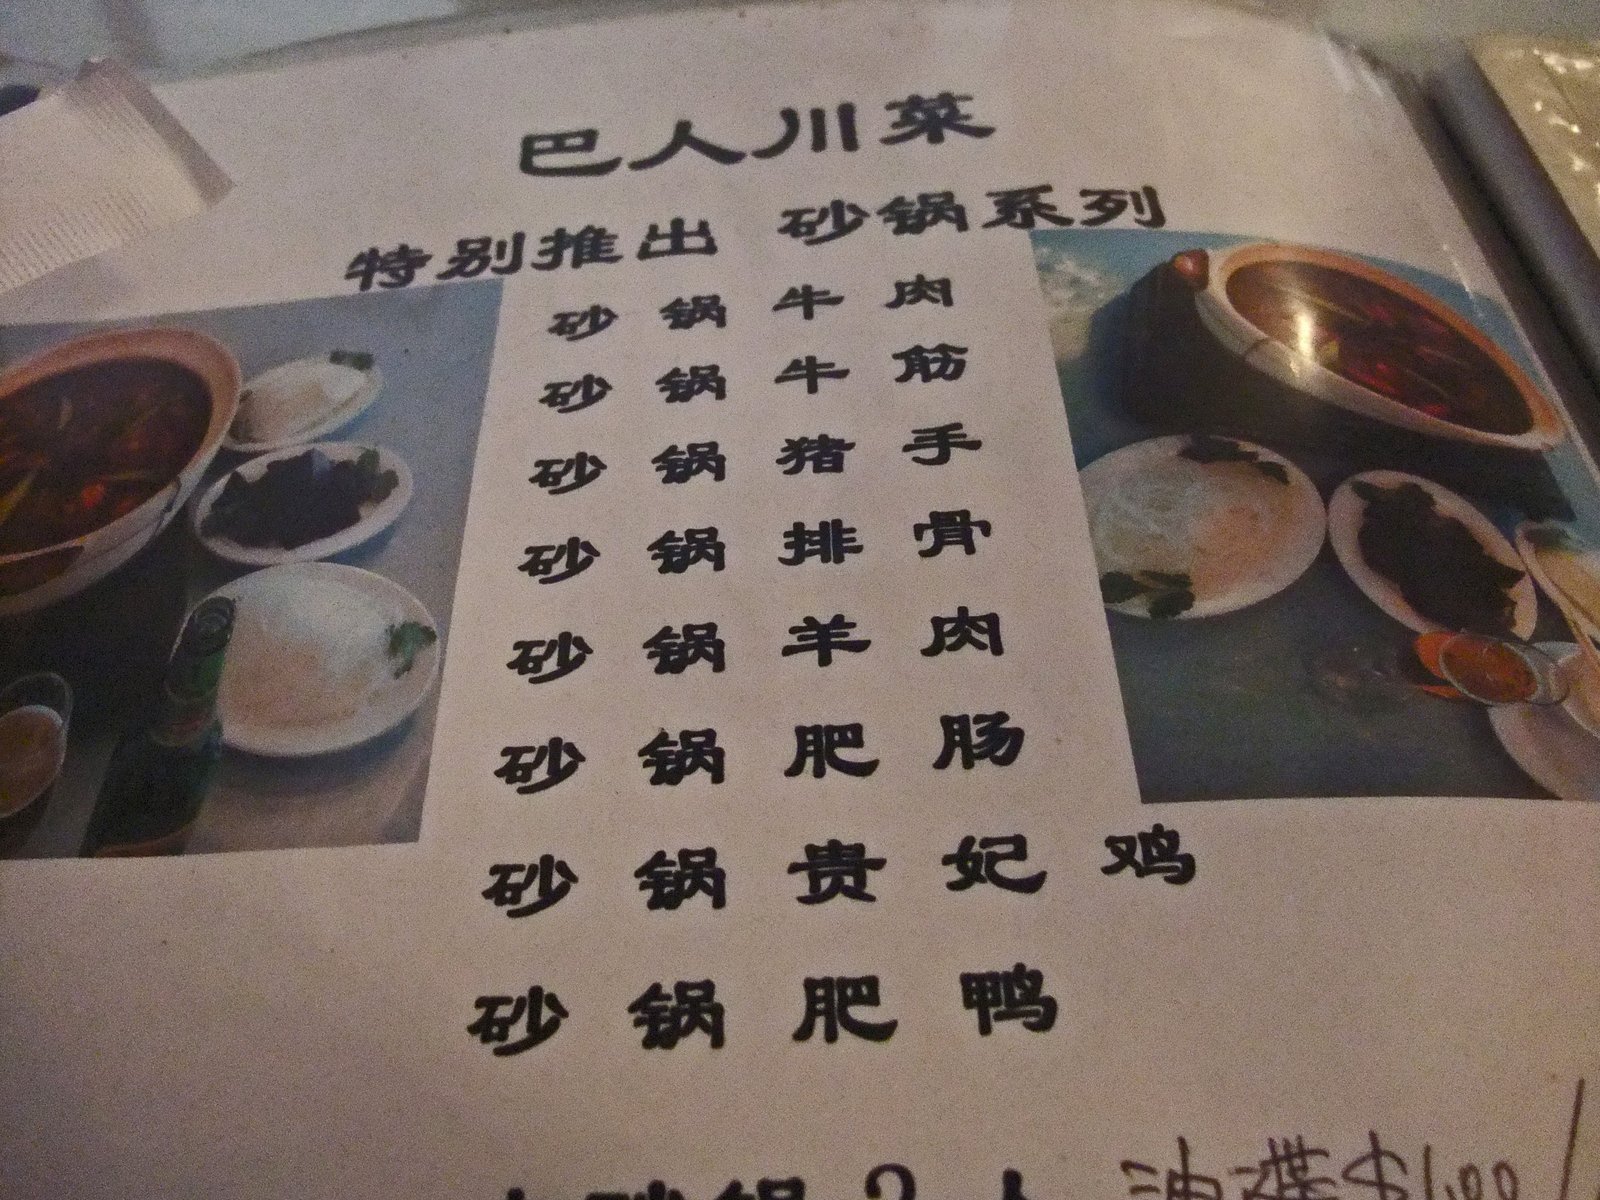 巴人川菜
特别推出 砂锅系列
砂锅牛肉
砂锅牛筋
砂锅猪手
砂锅排骨
砂锅羊肉
砂锅肥肠
砂锅贵妃鸡
砂锅肥鸭
油碟$1.00/